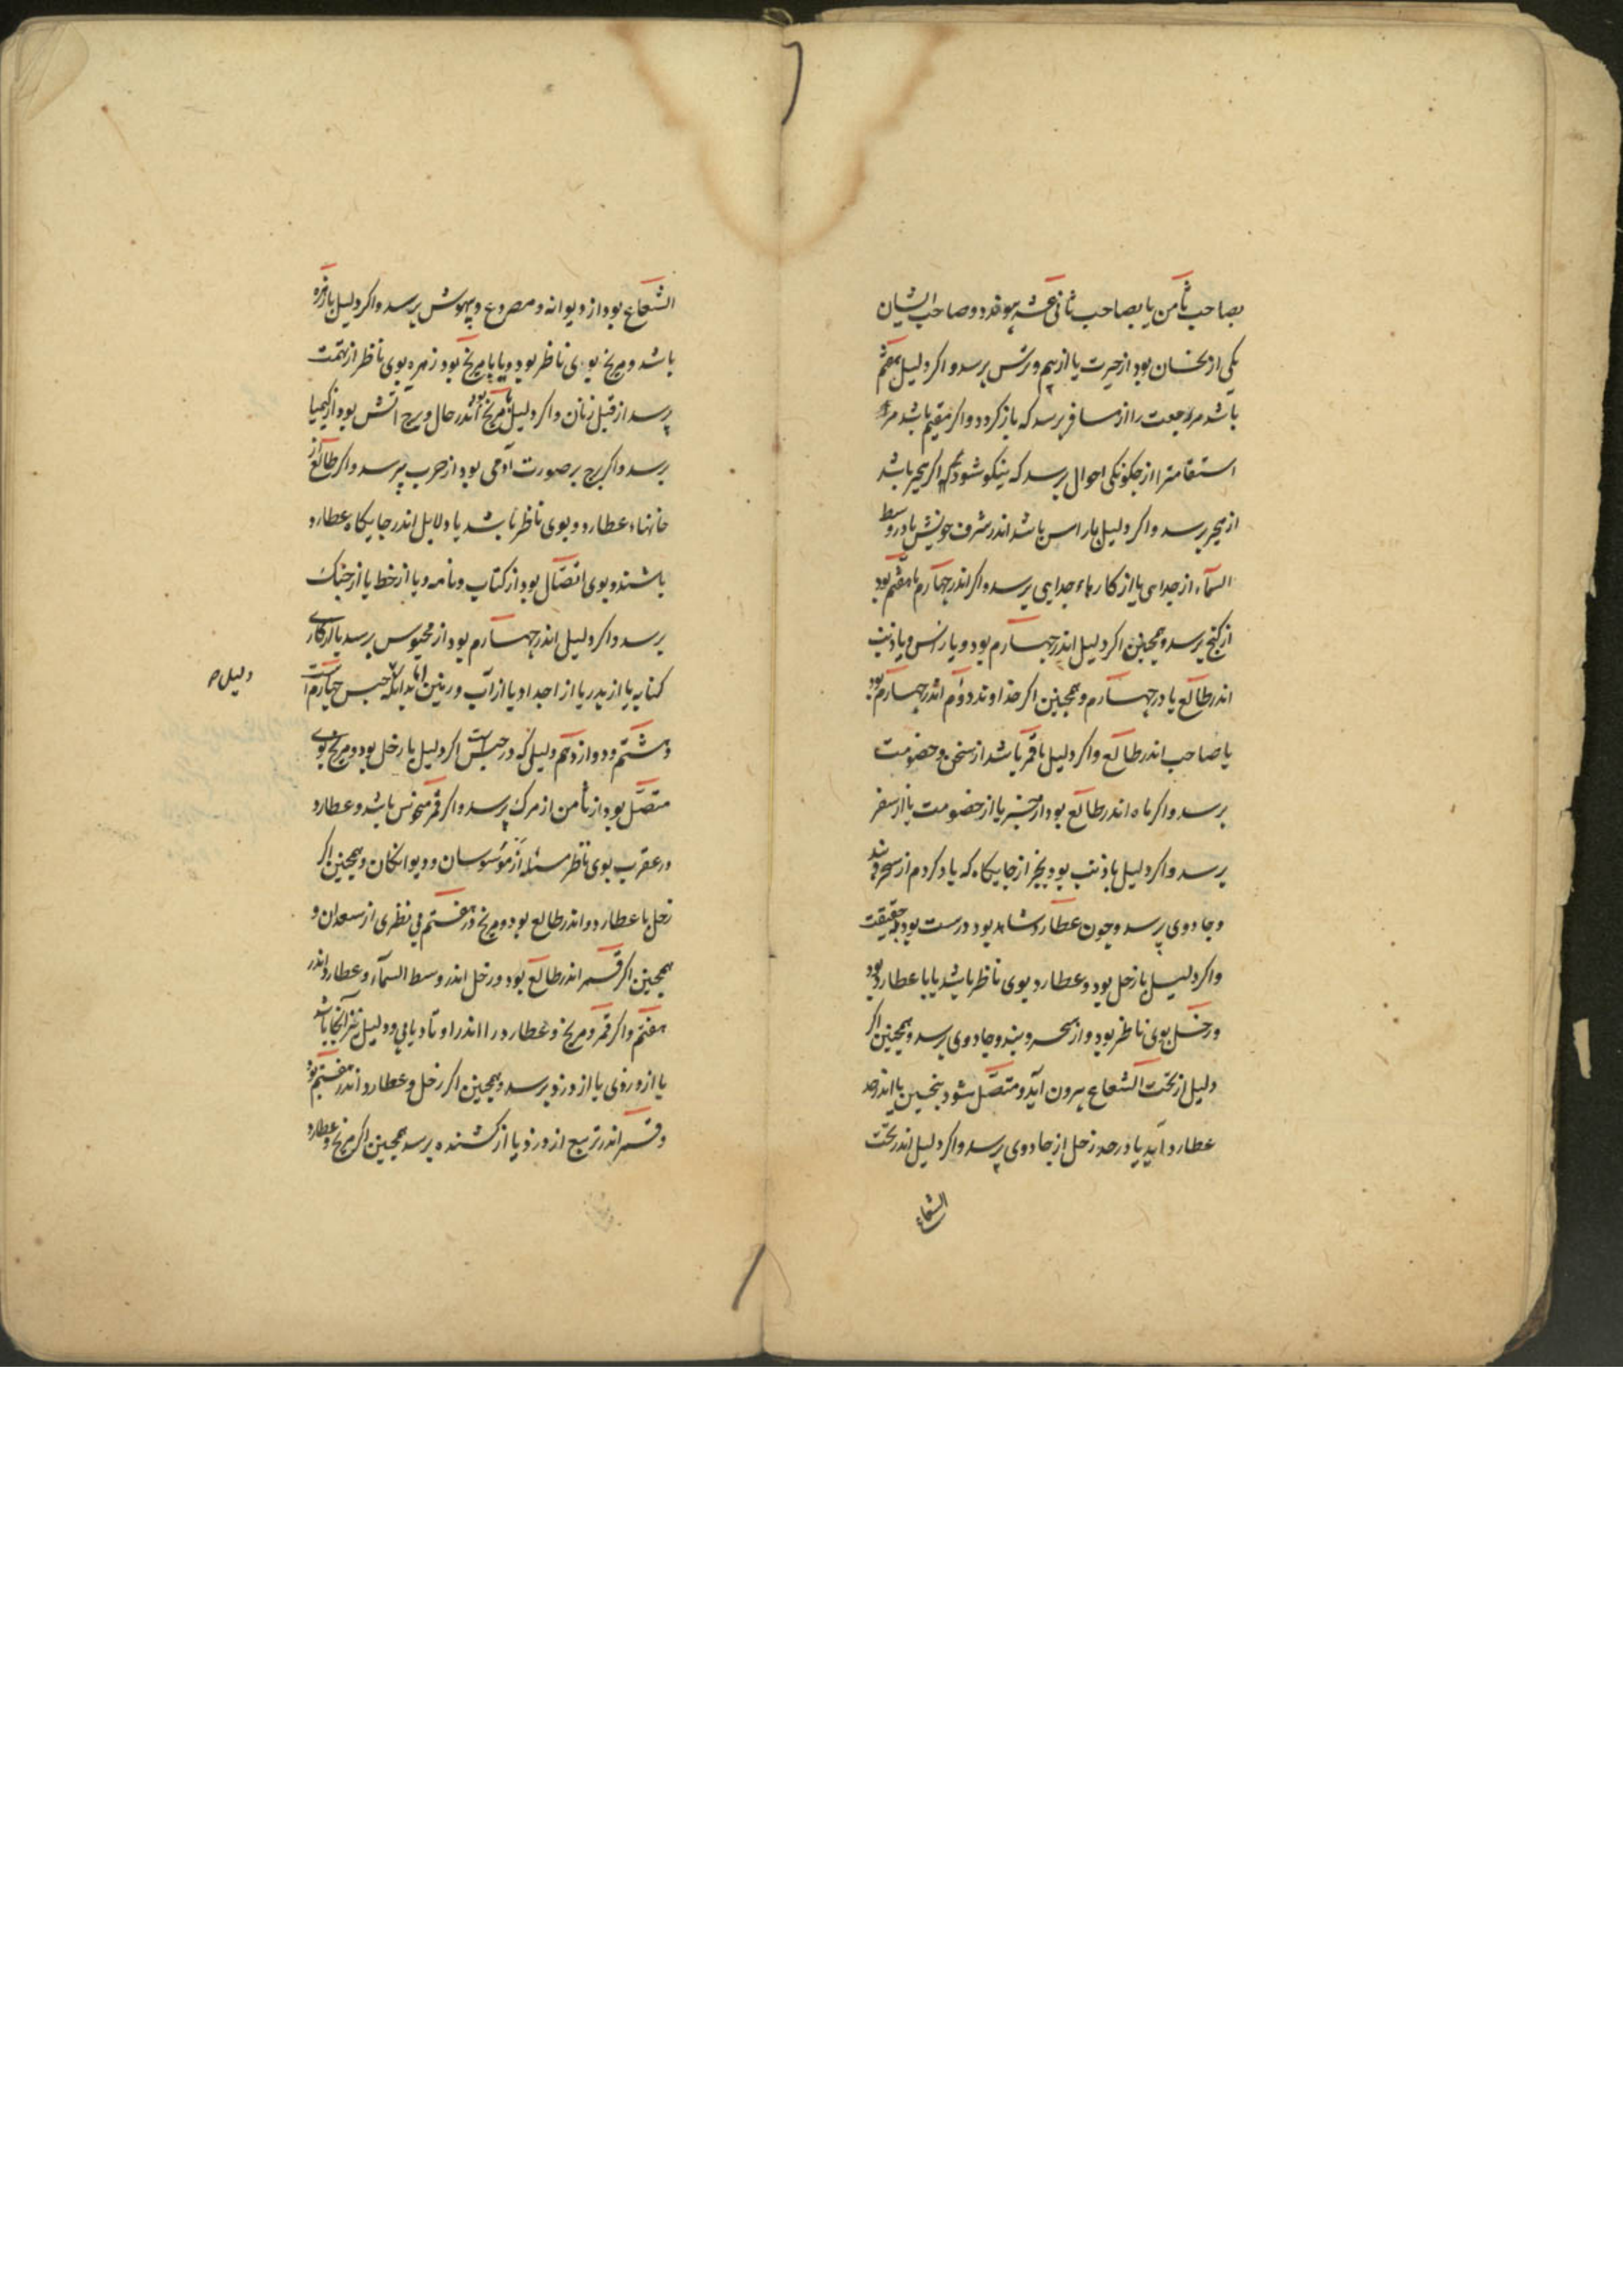 بصاحب ثامن یا بصاحب ثانی عشر پیوندد و صاحب ایشان
یکی از نحسان بود از حیرت یا از بیم و ترس پرسد و اکر دلیل مقیم
باشد مر رجعت را از مسافر پرسد که باز کردد و اکر مقیم باشد مر
استقامترا از چکونکی احوال پرسد که نیکو شود و اکر متحیر باشد
از متحیر پرسد و اکر دلیل با راس باشد اندر شرف خویش یا در وسط
السمآء از جدایی یا از کارهاء جدایی پرسد و اکر اندر چهارم یا هفتم بود
از کنج پرسد و همچنین اکر دلیل اندر چهارم بود و با راس و یا ذنب
اندر طالع یا در چهارم و همچنین اکر خداوند دوم اندر چهارم بود
یا صاحب اندر طالع و اکر دلیل با قمر باشد از سخن و خصومت
پرسد و اکر ماه اندر طالع بود از خبر یا از خصومت یا از سفر
پرسد و اکر دلیل با ذنب بود بجز از جایکاه که یاد کردم از سحر و بند
و جادوی پرسد و چون عطارد شاهد بود درست بود بحقیقت
و اکر دلیل با زحل بود و عطارد بوی ناظر باشد یا با عطارد بود
و زحل بوی ناظر بود و از سحر و بند و جادوی پرسد و همچنین اکر
دلیل از تحت الشعاع بیرون آید و متصل شود بنحسین یا اندر حد
عطارد آید یا در حد زحل از جادوی پرسد و اکر دلیل اندر تحت
الشعاع
الشعاع بود از دیوانه و مصروع و بیهوش پرسد و اکر دلیل با زهره
باشد و مریخ بوی ناظر بود و یا با مریخ بود زهره بوی ناظر از تهمت
پرسد از قبل زنان و اکر دلیل با مریخ بود اندر حال و برج آتش بود از کیمیا
پرسد و اکر برج بر صورت آدمی بود از حرب پرسد و اکر طالع از
خانهاء عطارد و بوی ناظر باشد یا دلایل اندر جایکاه عطارد
باشند و بوی اتصال بود از کتاب و نامه و یا از خط یا از جنک
پرسد و اکر دلیل اندر چهارم بود از محبوس پرسد یا از کاری
کنایه یا از پدر یا از اجداد یا از آب و زمین اما بدانکه حبس چهارم است
دلیل ص
و هشتم و دوازدهم دلیلی که در حبس است اکر دلیل با زحل بود و مریخ بوی
متصل بود از ثامن از مرک پرسد و اکر قمر منحوس باشد و عطارد
در عقرب بوی ناظر مسئله از موسوسان و دیوانکان و همچنین اکر
زحل با عطارد و اندر طالع بود و مریخ در هفتم بی نظری از سعدان و
همچنین اکر قمر اندر طالع بود و زحل اندر وسط السمآء و عطارد اندر
هفتم و اکر قمر و مریخ و عطارد را اندر اوتاد یابی و دلیل نیز آنجا باشد
یا از دزدی یا از دزد پرسد و همچنین اکر زحل و عطارد اندر هفتم بود
و قمر اندر تربیع از دزد یا از کشنده پرسد همچنین اکر مریخ و عطارد